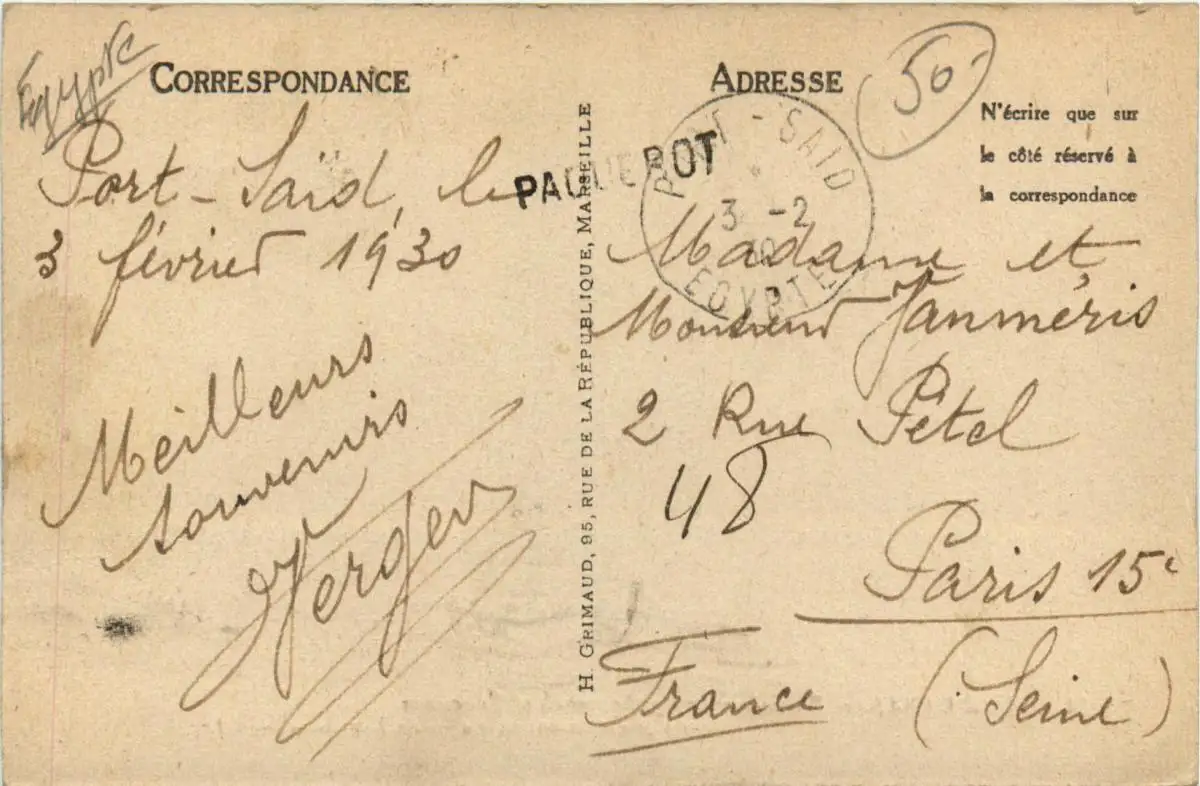 Egypte
CORRESPONDANCE
Port-Saïd, le
3 février 1930
Meilleurs
souvenirs
Verger
PAQUEBOT
H. GRIMAUD, 95, RUE DE LA RÉPUBLIQUE, MARSEILLE
ADRESSE
50-
N'écrire que sur
le côté réservé à
la correspondance
PORT-SAID
3 -2
EGYPTE
Madame et
Monsieur Janméris
2 Rue Pétel
48
Paris 15e
France (Seine)